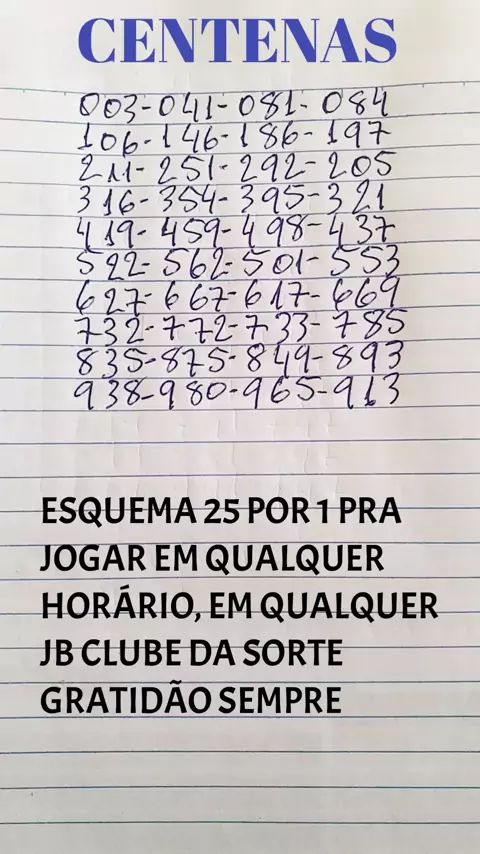 CENTENAS
003-041-081-084
106-146-186-197
211-251-292-205
316-354-395-321
419-459-498-437
522-562-501-553
627-667-617-669
732-772-733-785
835-875-849-893
938-980-965-913
ESQUEMA 25 POR 1 PRA
JOGAR EM QUALQUER
HORÁRIO, EM QUALQUER
JB CLUBE DA SORTE
GRATIDÃO SEMPRE